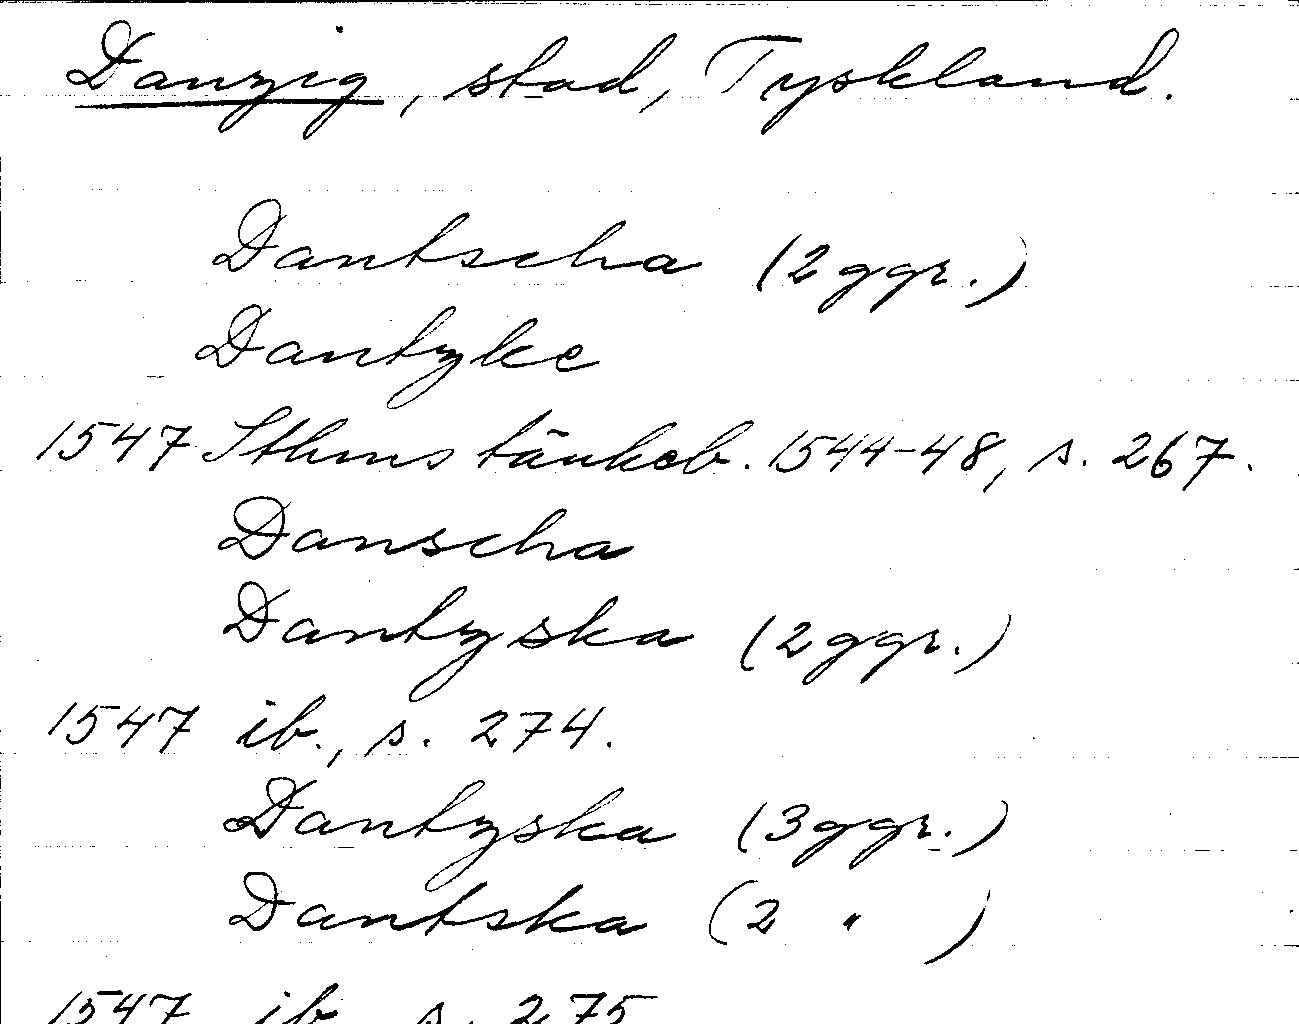 Danzig, stad, Tyskland.
Dantscha (2 ggr.)
Dantzke
1547 Sthms tänkeb. 1544-48, s. 267.
Danscha
Dantzska (2 ggr.)
1547 ib., s. 274.
Dantzska (3 ggr.)
Dantska (2 " )
1547 ib. s. 275